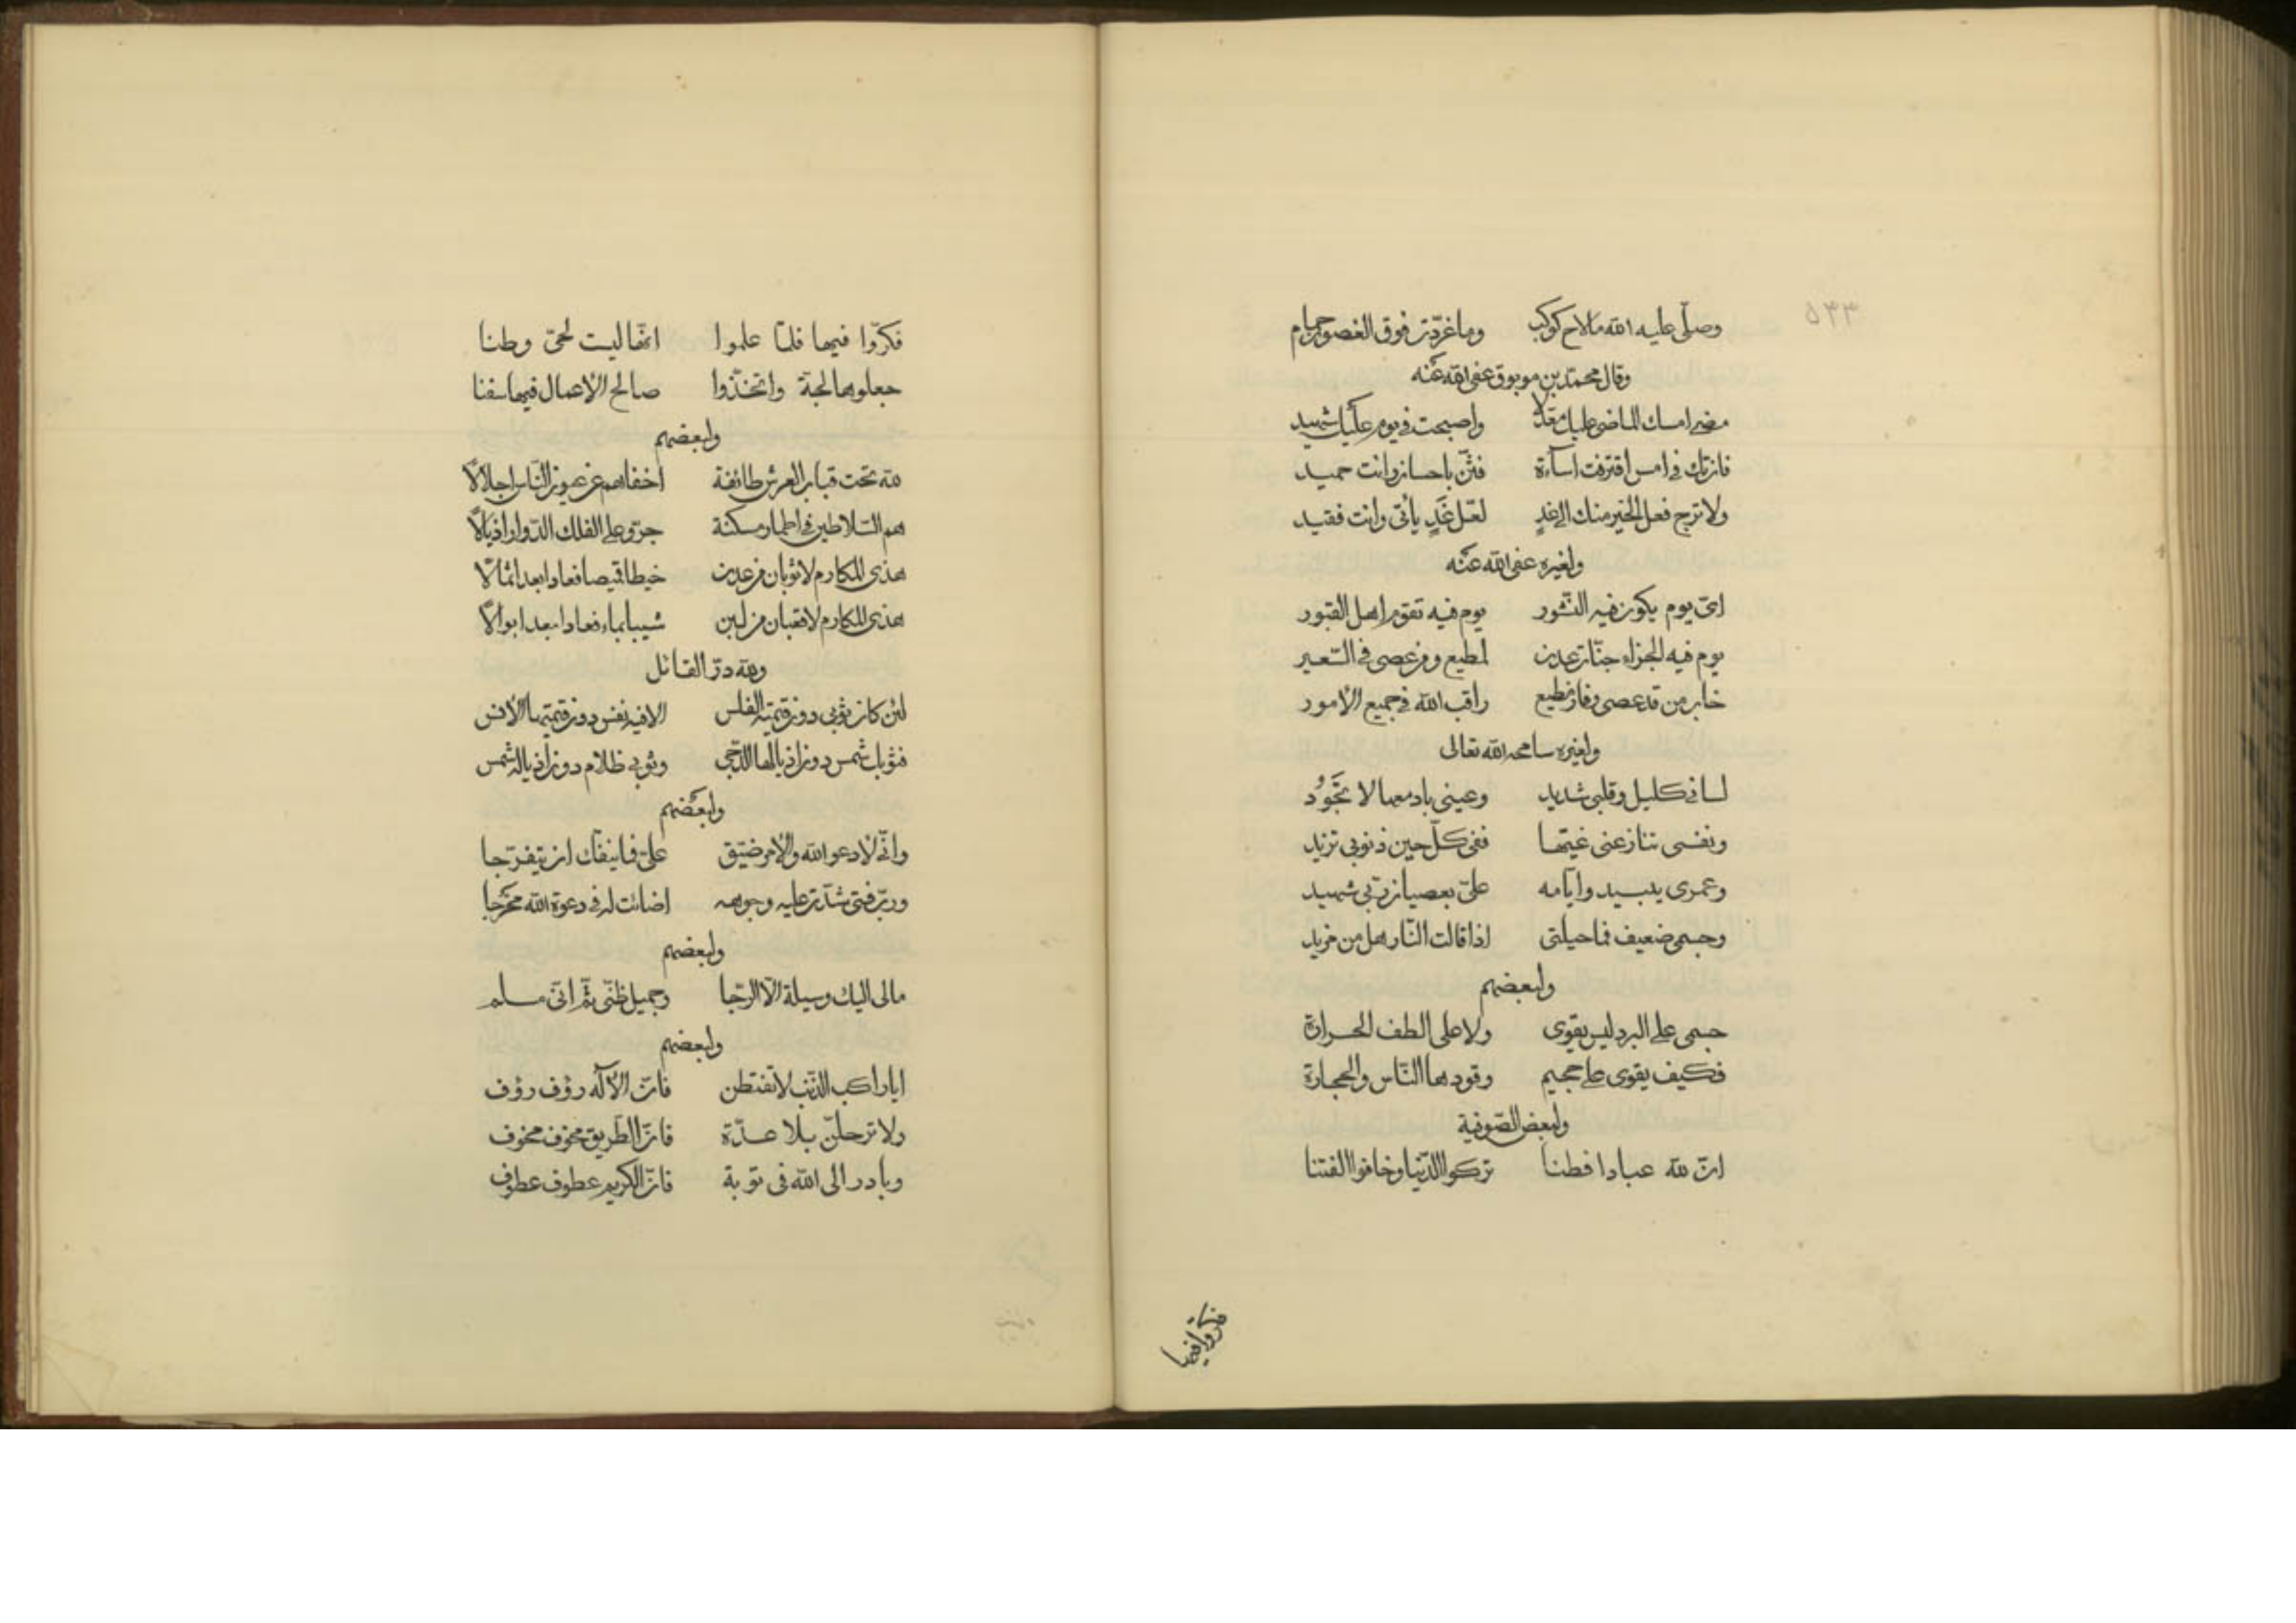 ٥٣٣
وصلّى عليه الله ما لاح كوكب وما غرّدت فوق الغصور حمام
وقال محمّد بن عفى الله عنه
مضى امسك الماضى عليك معدلا واصبحت في يوم عليك شهيد
فان تك في امس اقترفت اساءة فثنّ باحسان وانت حميد
ولا ترج فعل الخير منك الى غدٍ لعّل غَدٍ يأتى وانت فقيد
ولغيره عفى الله عنه
اىّ يوم يكون فيه النّشور يوم فيه تقوم اهل القبور
يوم فيه الجزاء جنّات عدن لمطيع ومن عصى في السّعير
خاب من قد عصى وفاز مطيع راقب الله في جميع الأمور
ولغيره سامحه الله تعالى
لسانى كليل وقلبى شديد وعينى بادمعها لا تجَوُد
ونفسى تنازعنى غيّها ففى كلّ حين ذنوبى تزيد
وعمرى يبيد وايامه علىّ بعصيان ربّى شهيد
وجسمى ضعيف فما حيلتى اذا قالت النّار هل من مزيد
ولبعضهم
جسمى على البرد ليس يقوى ولا على الطف الحرارة
فكيف يقوى على جحيم وقودها النّاس والحجارة
ولبعض الصّوفية
انّ لله عبادا فطنا تركوا الدّنيا وخافوا الفتنا
فكرّوا فيها
فكرّوا فيها فلمّا علموا انّها ليست لحىّ وطنا
جعلوها لجة واتّخذوا صالح الأعمال فيها سفنا
ولبعضهم
لله تحت قباب العرش طائفة اخفاهم عن عيون النّاس اجلالاً
هم السّلاطين في اطمار مسكنة جرّوا على الفلك الدّوار اذيالاً
هذى المكارم لا ثوبان من عدن خيطا قميصا فعادا بعد اثمالاً
هذى المكارم لا قعبان من لبن شيبا بماء فعادا بعد ابوالاً
ولله درّ القائل
لئن كان ثوبى دون قيمته الفلس الا فيه نفس دون قيمتها الأنس
فثوبك شمس دون اذيالها الدّجى وثوبى ظلام دون اذياله شمس
ولبعضهم
وانّى لادعو الله والأمر ضيّق علىّ فما ينفكّ ان يتفرّجا
وربّ فتى سُدّت عليه وجوهه اضائت له في دعوة الله مخرجا
ولبعضهم
مالى اليك وسيلة الّا الرّجا وجميل ظنّى ثمّ انّى مسلم
ولبعضهم
ايا راكب الذّنب لا تقنطن فانّ الأله رؤف رؤف
ولا ترحلنّ بلا عدّة فانّ الطّريق مخوف مخوف
وبادر الى الله فى توبة فانّ الكريم عطوف عطوف